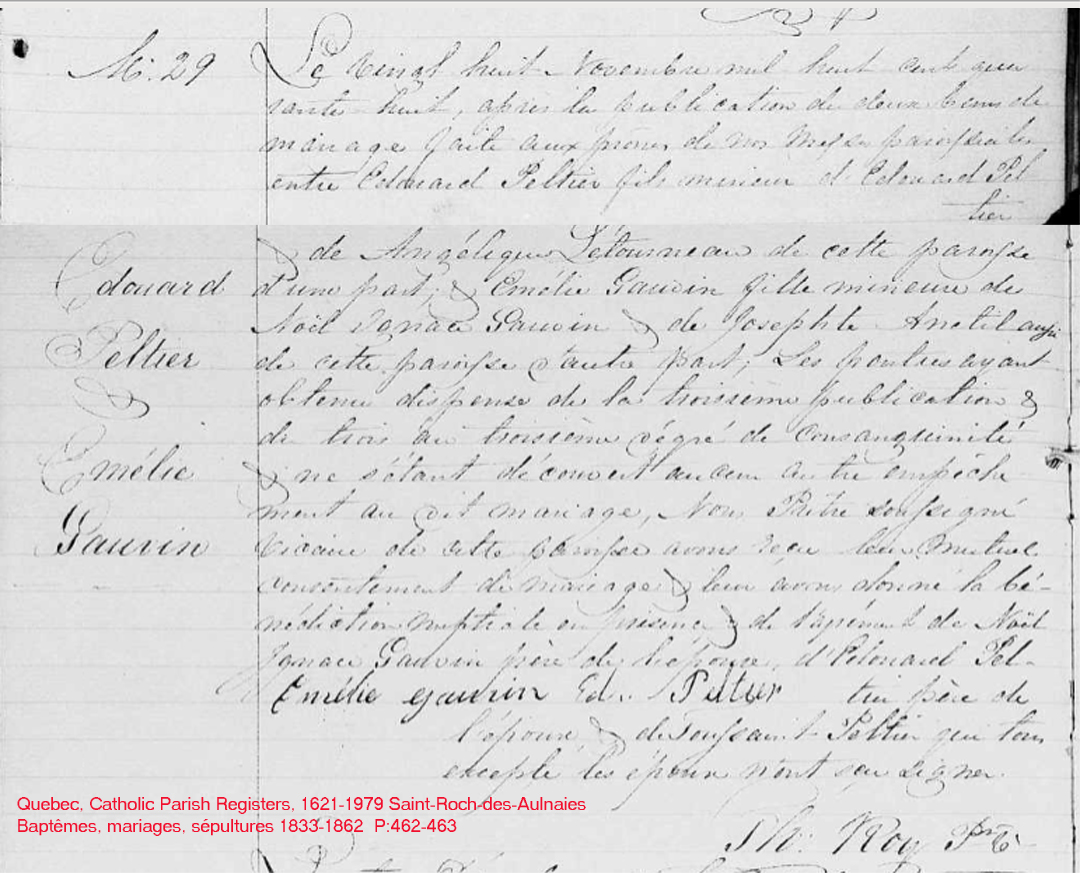 M. 29
Le vingt huit Novembre mil huit cent qua
rante-huit, après la publication de deux bans de
mariage faite aux prônes de nos Messes paroissiales
entre Edouard Peltier fils mineur d'Edouard Pel
tier
& de Angélique Létourneau de cette paroisse
d'une part; & Emélie Gauvin fille mineure de
Noël Ignace Gauvin & de Josephte Anctil aussi
de cette paroisse d'autre part; Les parties ayant
obtenu dispense de la troisième publication &
de trois au troisième dégré de consanguinité
& ne s'étant découvert aucun autre empêche
ment au dit mariage, Nous Prêtre soussigné
Vicaire de cette paroisse avons reçu leur mutuel
consentement de mariage & leur avons donné la bé-
nédiction nuptiale en présence & de l'agrément de Noël
Ignace Gauvin père de l'épouse, d'Edouard Pel-
Emélie gauvin Ed. Peltier tier père de
l'époux & de Toussaint Peltier qui tous
excepté les époux n'ont sçu signer.
Th: Roy Ptre
Edouard
Peltier
&
Emélie
Gauvin
Quebec, Catholic Parish Registers, 1621-1979 Saint-Roch-des-Aulnaies
Baptêmes, mariages, sépultures 1833-1862 P:462-463